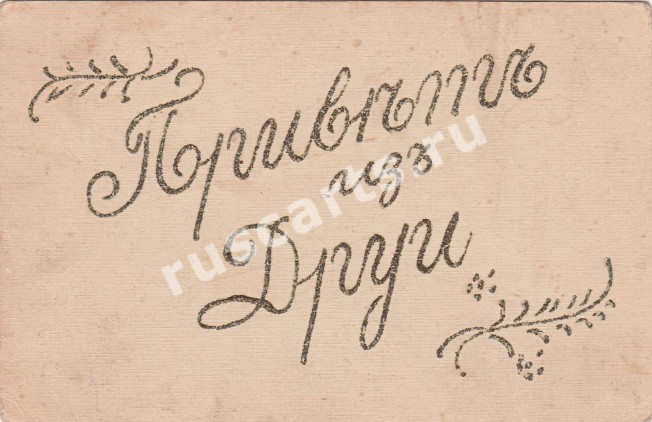 Привѣтъ
изъ
Друи
ruscarts.ru